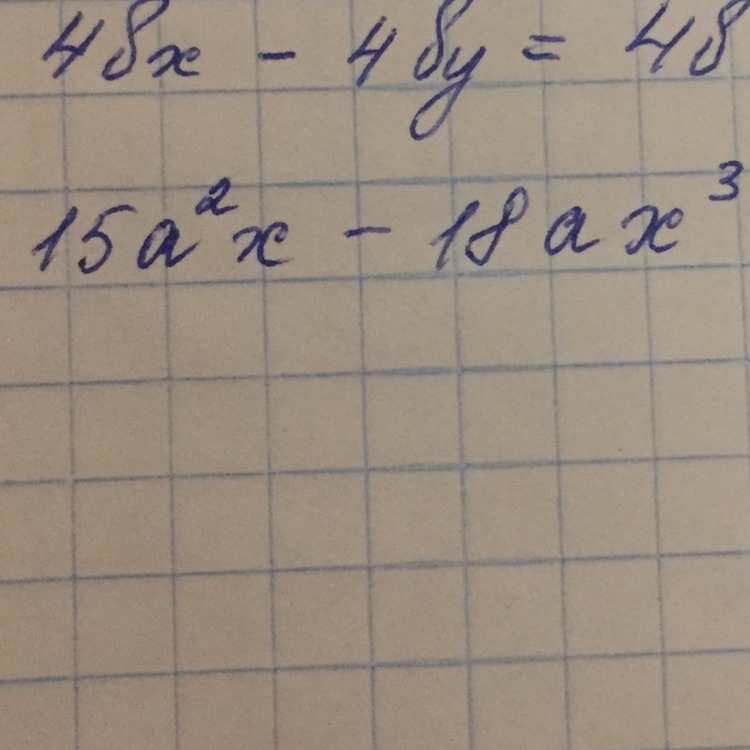 4bx - 4by = 4b
15a²x - 18ax³